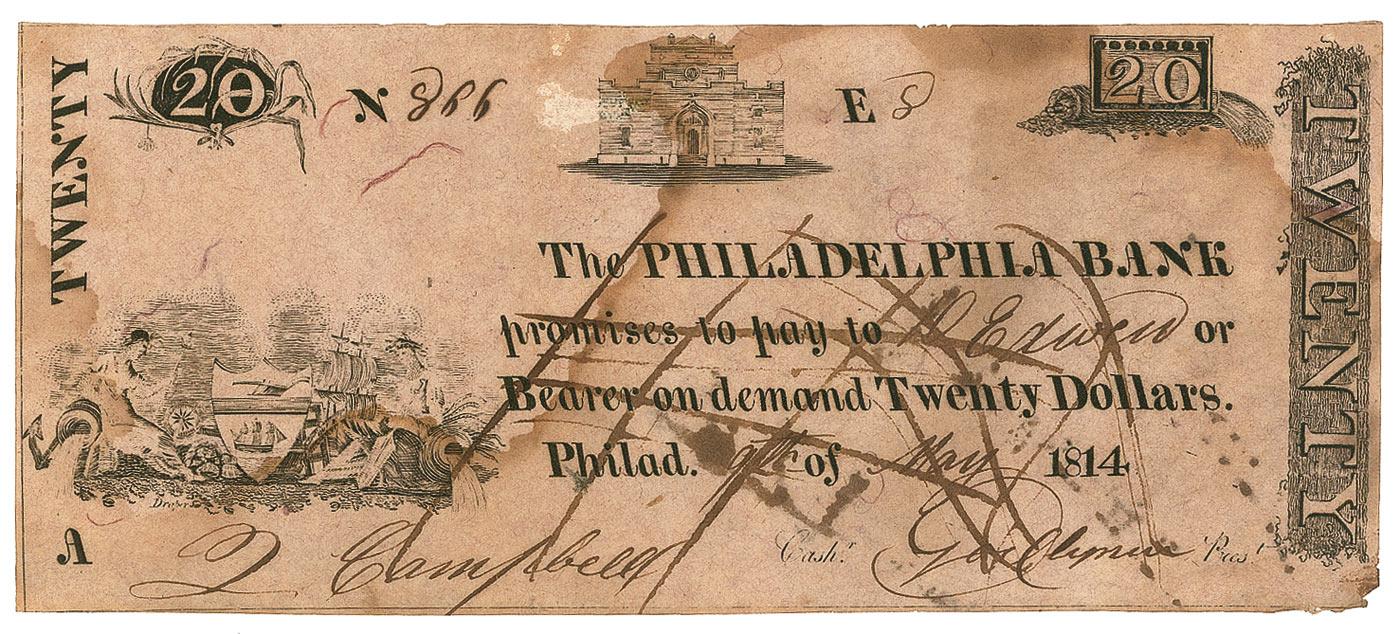 TWENTY
20 N 866 E 8 20
TWENTY
The PHILADELPHIA BANK
promises to pay to Edwerd or
Bearer on demand Twenty Dollars.
Philad. 9th of May 1814
A Q Campbell Cashr. Geo Clymer Prest.